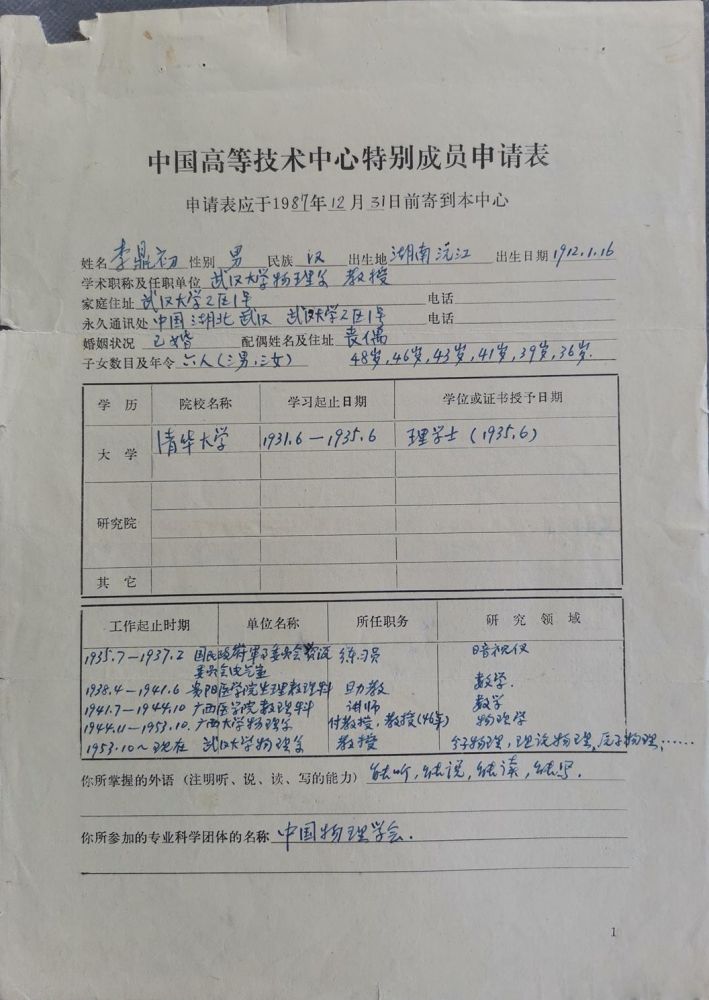 中国高等技术中心特别成员申请表
申请表应于1987年12月31日前寄到本中心
姓名 李鼎初 性别 男 民族 汉 出生地 湖南沅江 出生日期 1912.1.16
学术职称及任职单位 武汉大学物理系 教授
家庭住址 武汉大学2区1号 电话
永久通讯处 中国湖北武汉 武汉大学2区1号 电话
婚姻状况 已婚 配偶姓名及住址 丧偶
子女数目及年令 六人(三男,三女) 48岁,46岁,43岁,41岁,39岁,36岁.
学历 院校名称 学习起止日期 学位或证书授予日期
大学 清华大学 1931.6—1935.6 理学士(1935.6)
研究院
其它
工作起止时期 单位名称 所任职务 研究领域
1935.7—1937.2 国民政府军事委员会资源 练习员 暗视仪
委员会电气室
1938.4—1941.6 贵阳医学院生理数理科 助教 数学.
1941.7—1944.10 广西医学院数理科 讲师 数学
1944.11—1953.10. 广西大学物理系 付教授.教授(46年) 物理学
1953.10~现在 武汉大学物理系 教授 分子物理,理论物理,原子物理;……
你所掌握的外语(注明听、说、读、写的能力) 能听,能说,能读,能写.
你所参加的专业科学团体的名称 中国物理学会.
1